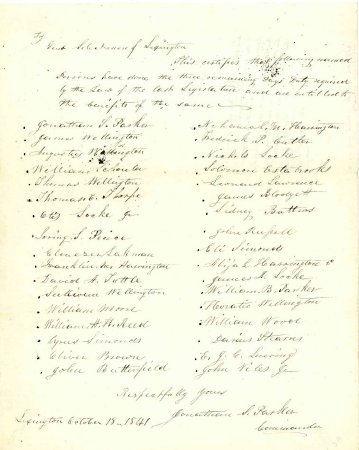 To
Gent Selectmen of Lexington
This certifies that following named
Persons have done the three remaining Days Duty required
by the Law of the last Legislature and are entitled to
the benefits of the same
Jonathan S. Parker
James Wellington
Augustus Wellington
William
Thomas Wellington
Thomas
Eli Locke Jr
Irving S. Peirce
Ebenezer Lakeman
Franklin Harrington
David A. Tuttle
Sullivan Wellington
William More
William H.
Cyrus Simonds
Oliver Brown
John Butterfield
Nehemiah M. Harrington
Fredrick P. Cutler
Nichols Locke
Solomon Estabrooks
Leonard Lawrence
James Blodgett
Sidney Butters
John Russell
Eli Simonds
Elijah Harrington
James Locke
William B. Parker
Horatio Wellington
William Wood
Darius Stearns
G. J. C.
John Viles Jr
Respectfully Yours
Jonathan S. Parker
Commander
Lexington October 18 - 1841